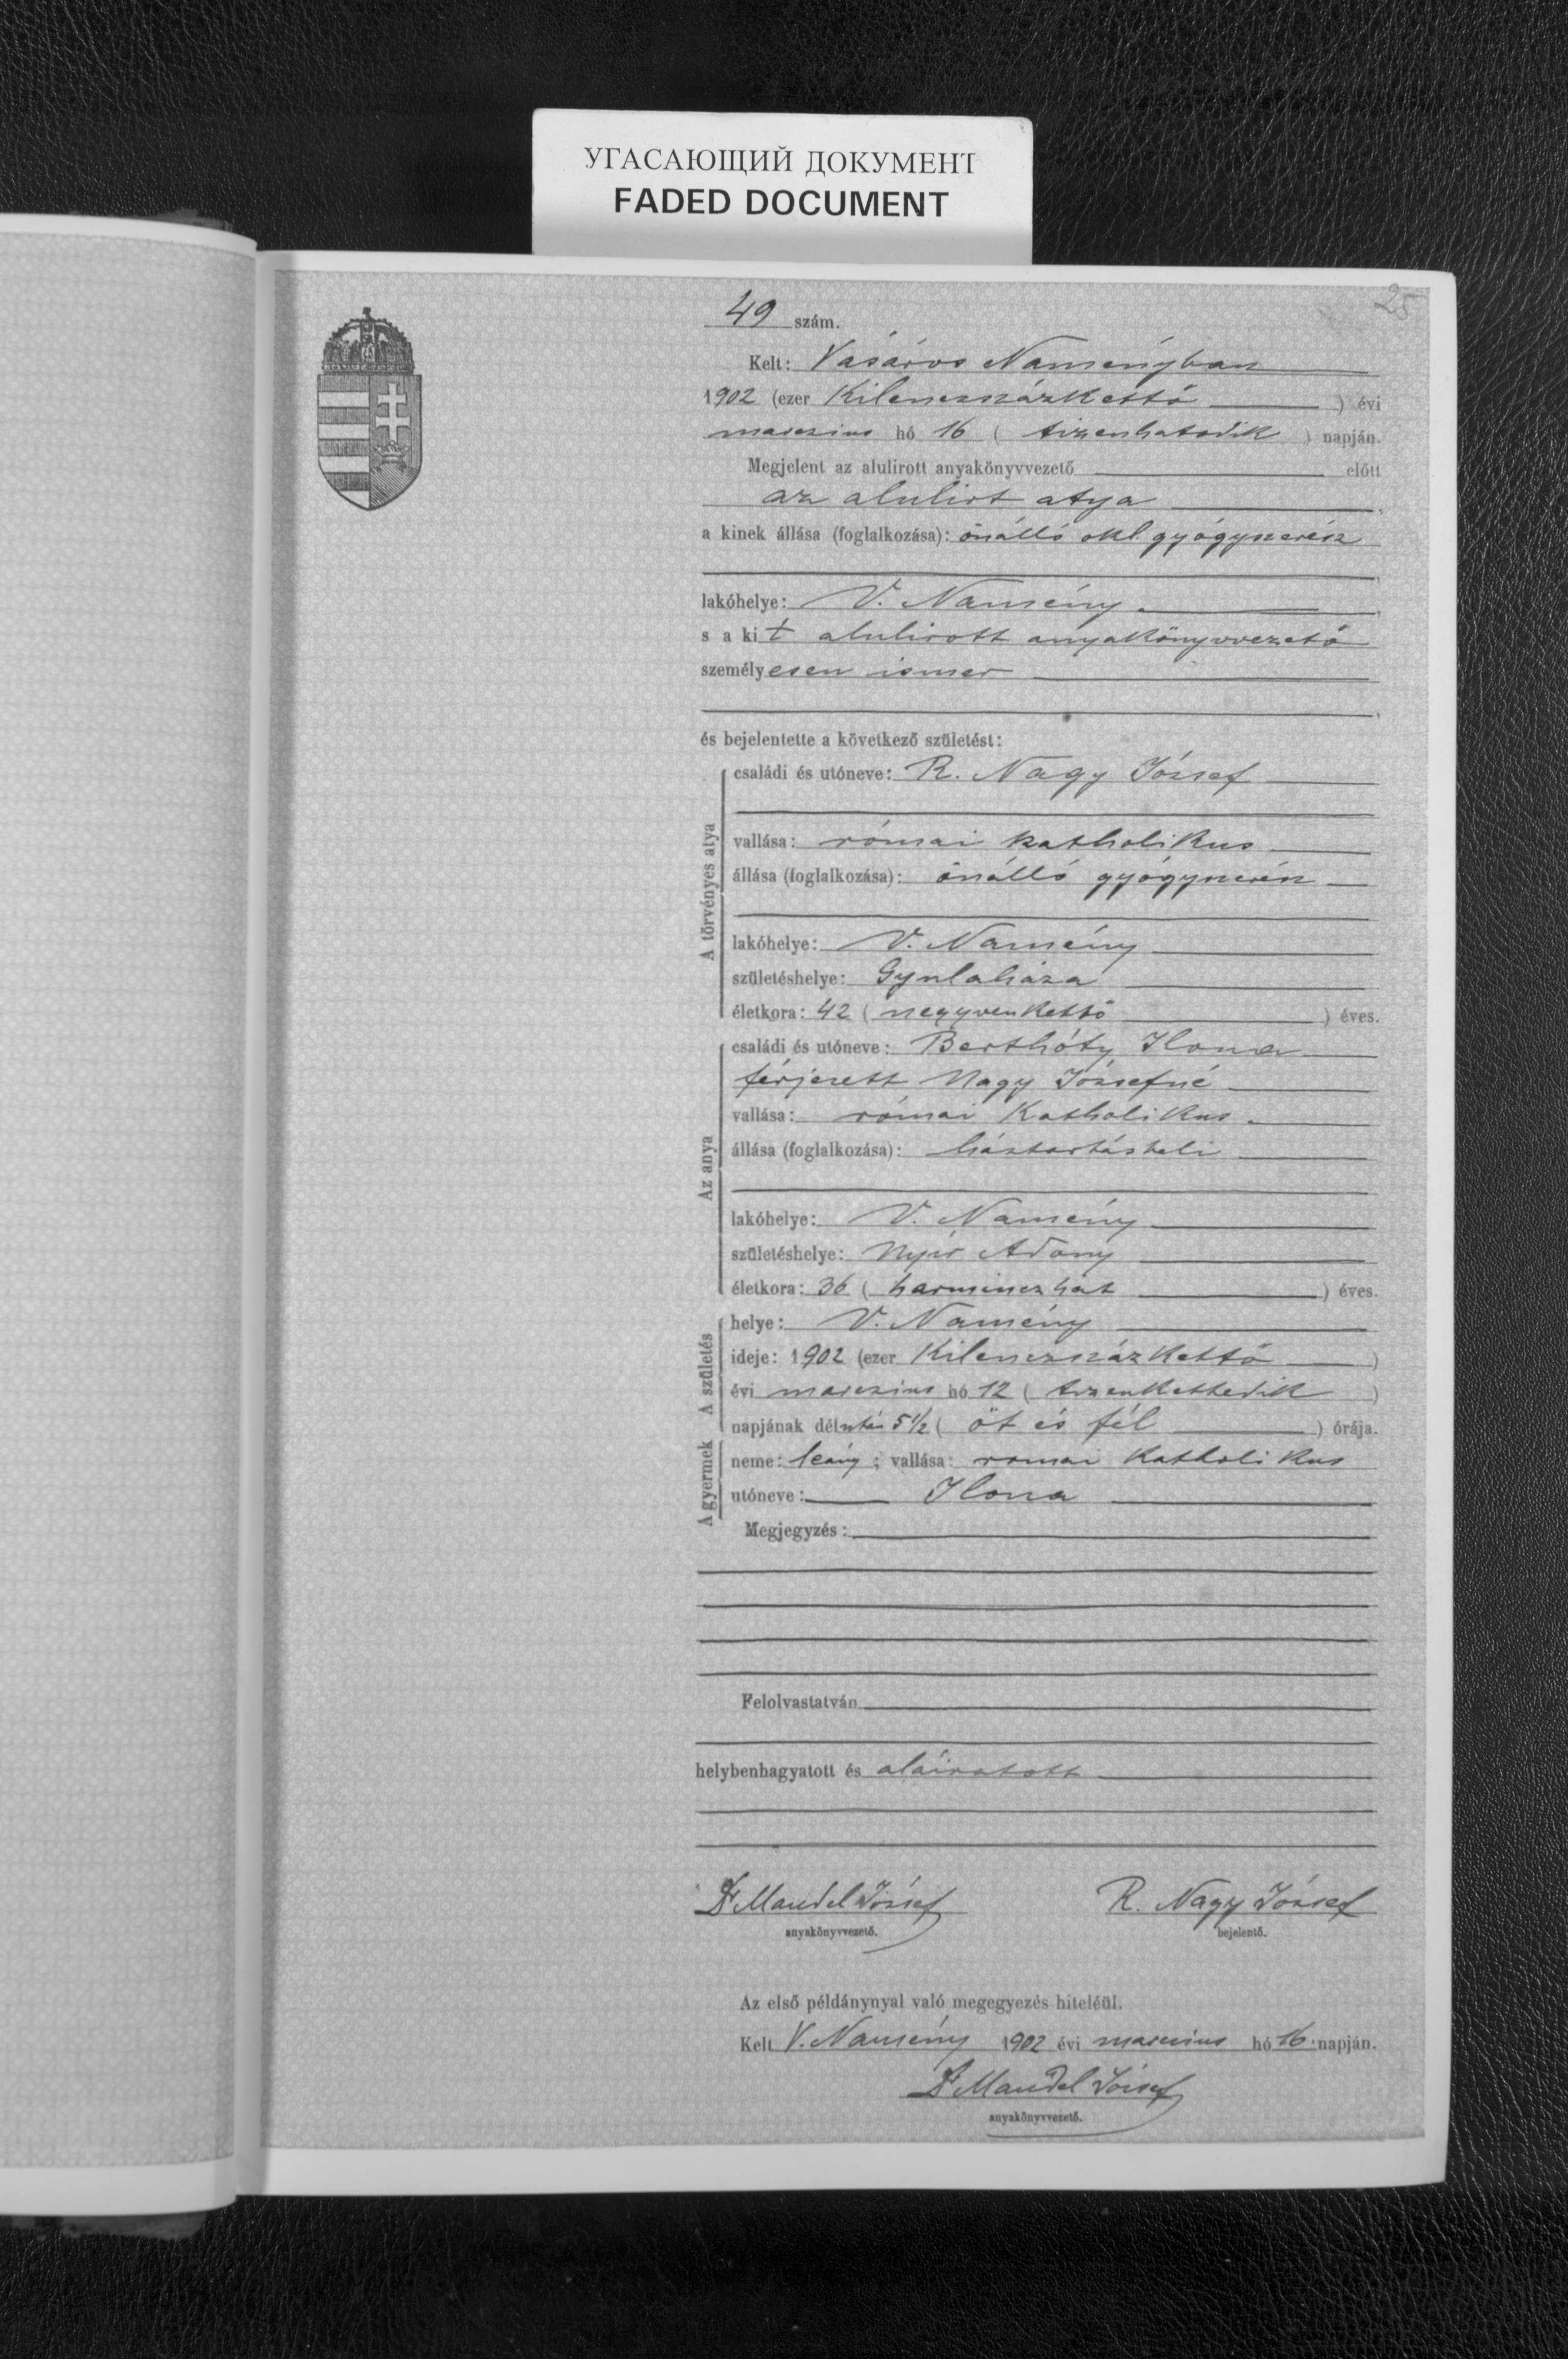 УГАСАЮЩИЙ ДОКУМЕНТ
FADED DOCUMENT
25
49 szám.
Kelt: Vásáros Naményban
1902 (ezer Kilenczszázkettő ) évi
marczius hó 16 ( tizenhatodik ) napján.
Megjelent az alulirott anyakönyvvezető előtt
az alulirt atya ,
a kinek állása (foglalkozása): önálló okl. gyógyszerész
,
lakóhelye: V. Namény ,
s a kit alulirott anyakönyvvezető
személyesen ismer
,
és bejelentette a következő születést:
A törvényes atya
családi és utóneve: R. Nagy József
vallása: római katholikus
állása (foglalkozása): önálló gyógyszerész
lakóhelye: V. Namény
születéshelye: Gyulaháza
életkora: 42 ( negyvenkettő ) éves.
Az anya
családi és utóneve: Berthóty Ilona
férjezett Nagy Józsefné
vallása: római Katholikus
állása (foglalkozása): háztartásbeli
lakóhelye: V. Namény
születéshelye: Nyír Adony
életkora: 36 ( harminczhat ) éves.
A születés
helye: V. Namény
ideje: 1902 (ezer Kilenczszázkettő )
évi marczius hó 12 ( tizenkettedik )
napjának délután 5 1/2 ( öt és fél ) órája.
A gyermek
neme: leány; vallása: romai katholikus
utóneve: Ilona
Megjegyzés:
Felolvastatván
helybenhagyatott és aláiratott
Dr Mandel József R. Nagy József
anyakönyvvezető. bejelentő.
Az első példánynyal való megegyezés hiteléül.
Kelt V. Namény 1902 évi marczius hó 16 napján.
Dr Mandel József
anyakönyvvezető.